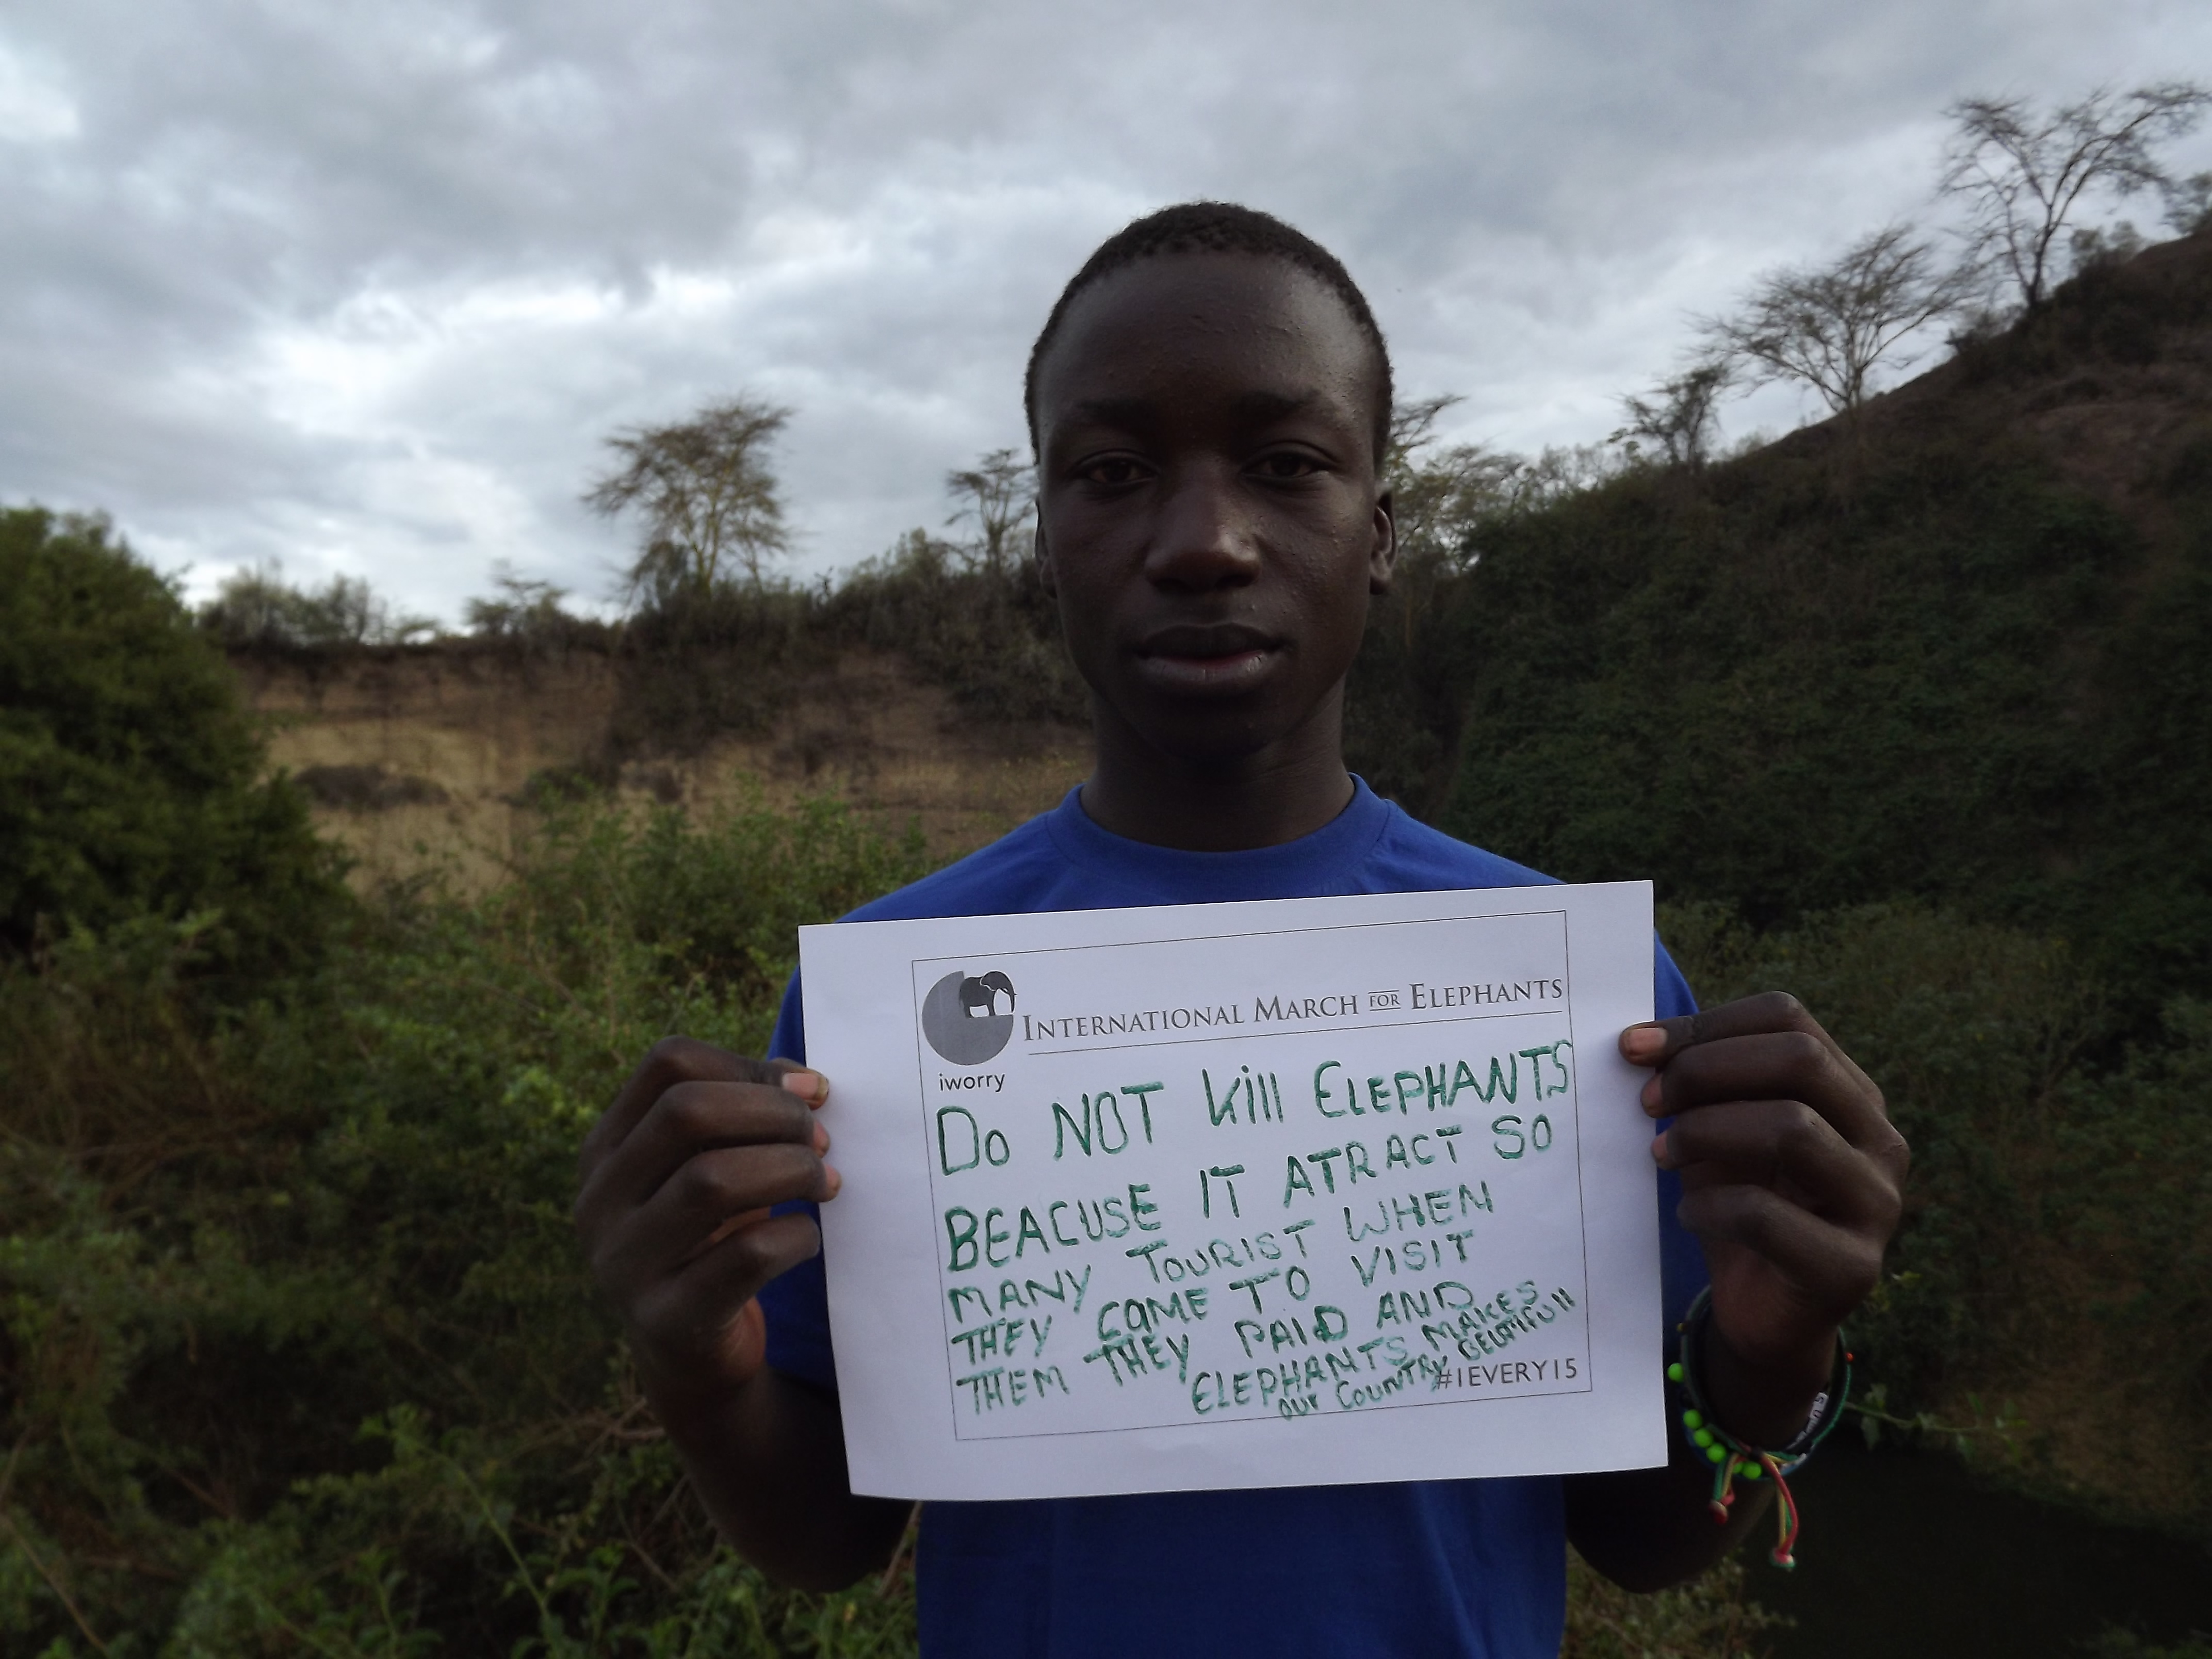 INTERNATIONAL MARCH FOR ELEPHANTS
iworry
DO NOT kill ELEPHANTS
BEACUSE IT ATRACT SO
MANY TOURIST WHEN
THEY COME TO VISIT
THEM THEY PAID AND
ELEPHANTS MAKES
OUR COUNTRY BEUTIFUll
#1EVERY15